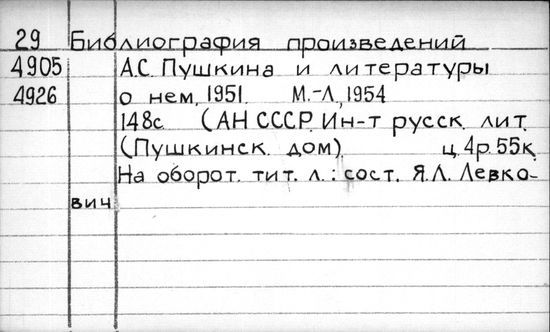 29 Библиография произведений
4905 А.С. Пушкина и литературы
4926 о нем, 1951. М.-Л., 1954
148с. (АН СССР. Ин-т русск. лит.
(Пушкинск. дом). ц. 4р. 55к.
На оборот. тит. л.: сост. Я.Л. Левко-
вич